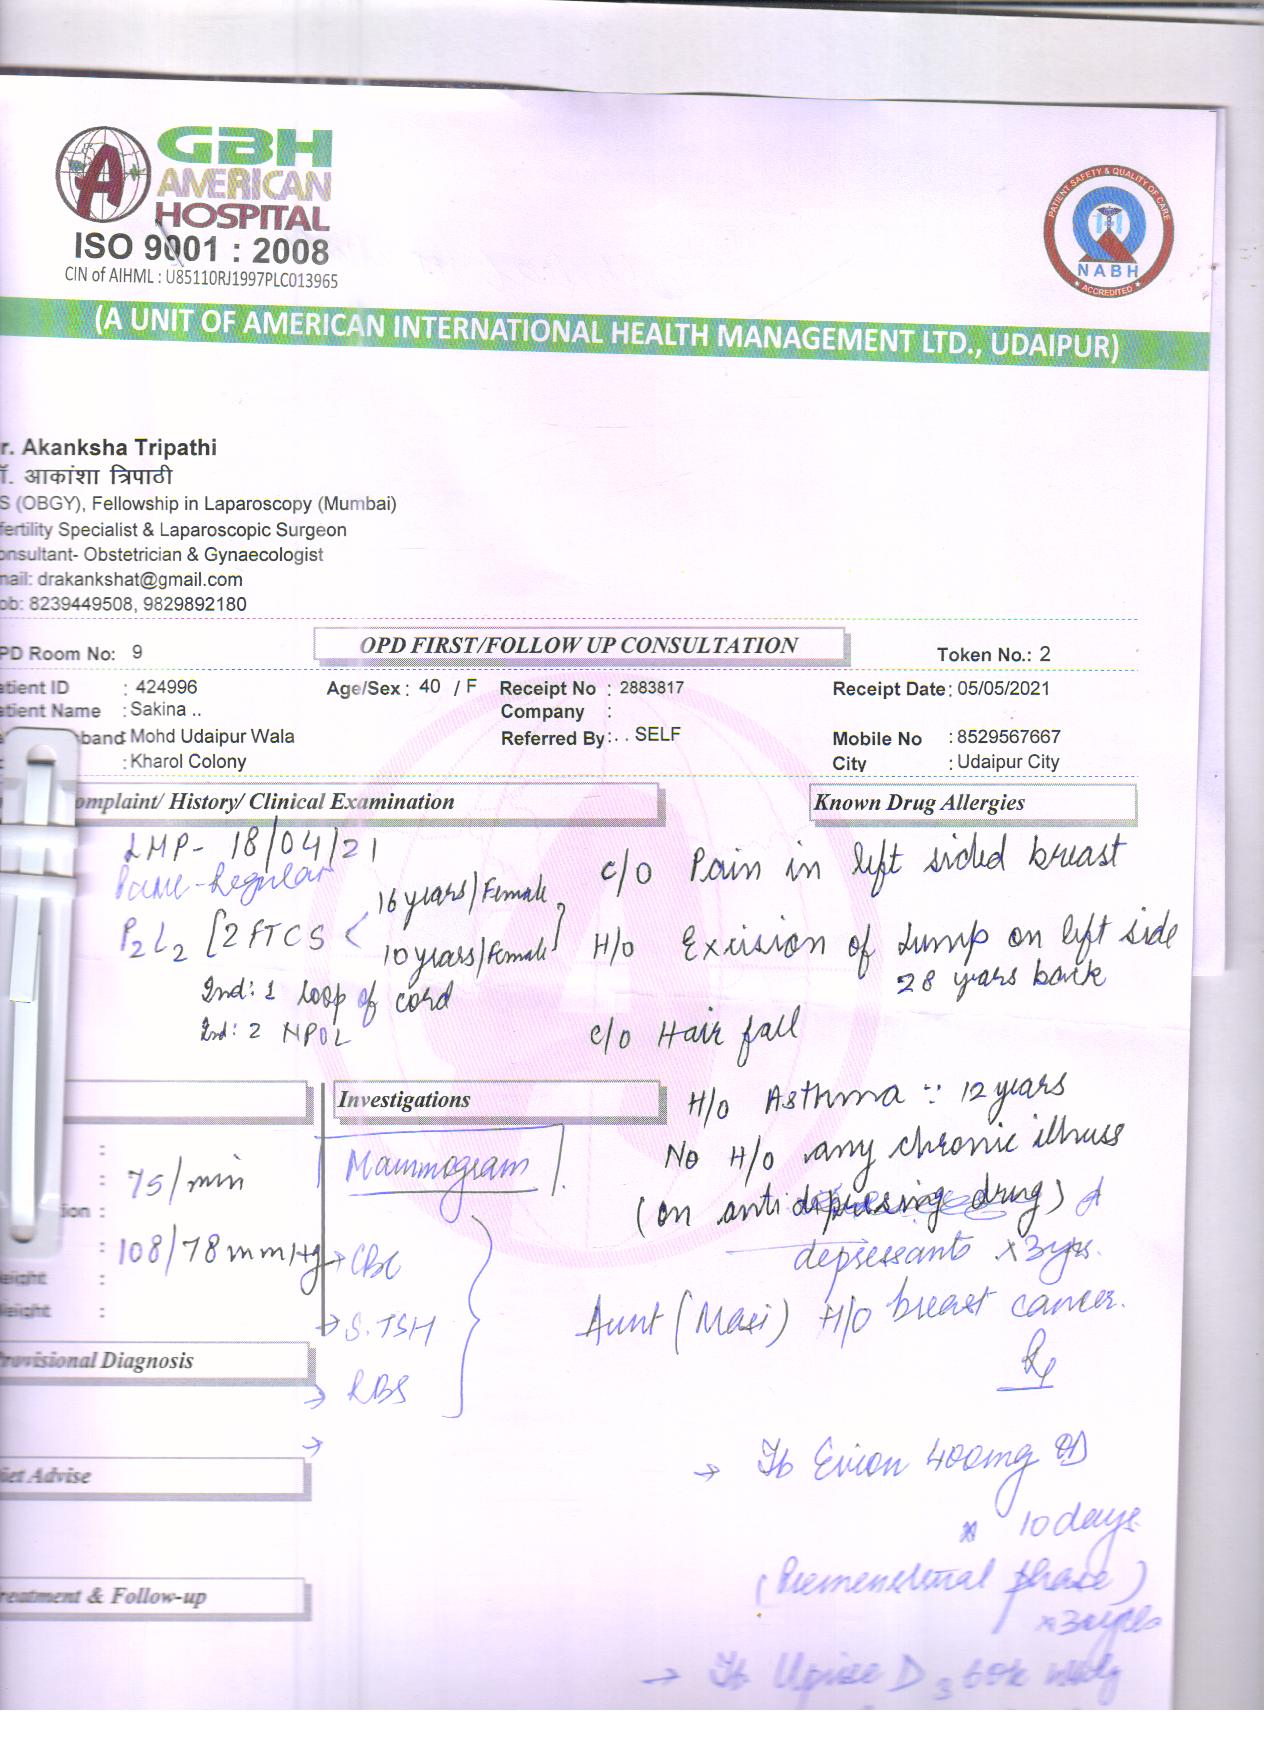 GBH
AMERICAN
HOSPITAL
ISO 9001 : 2008
CIN of AIHML : U85110RJ1997PLC013965
PATIENT SAFETY & QUALITY OF CARE
NABH
ACCREDITED
(A UNIT OF AMERICAN INTERNATIONAL HEALTH MANAGEMENT LTD., UDAIPUR)
r. Akanksha Tripathi
ॉ. आकांशा त्रिपाठी
S (OBGY), Fellowship in Laparoscopy (Mumbai)
fertility Specialist & Laparoscopic Surgeon
onsultant- Obstetrician & Gynaecologist
mail: drakankshat@gmail.com
ob: 8239449508, 9829892180
PD Room No: 9
OPD FIRST/FOLLOW UP CONSULTATION
Token No.: 2
atient ID : 424996 Age/Sex : 40 / F Receipt No : 2883817 Receipt Date: 05/05/2021
atient Name : Sakina .. Company :
band Mohd Udaipur Wala Referred By: . . SELF Mobile No : 8529567667
: Kharol Colony City : Udaipur City
omplaint/ History/ Clinical Examination
Known Drug Allergies
LMP- 18/04/21
Regular
P2L2 [2 FTCS < 16 years/Female
10 years/Female
2nd: 1 loop of cord
2nd: 2 NPOL
c/o Pain in left sided breast
H/o Excision of Lump on left side
28 years back
c/o Hair fall
H/o Asthma ∵ 12 years
No H/o any chronic illness
(on anti drug)
depressants x 3yrs.
Aunt (Masi) H/o breast cancer.
Investigations
Mammogram
→ CBC
→ S.TSH
→ RBS
→
:
: 75/min
tion :
: 108/78 mmHg
eight :
Weight :
Provisional Diagnosis
Diet Advise
reatment & Follow-up
Rx
→ Tb Evion 400mg OD
x 10 days
(Premenstrual phase)
→ Tb Uprise D3 60k